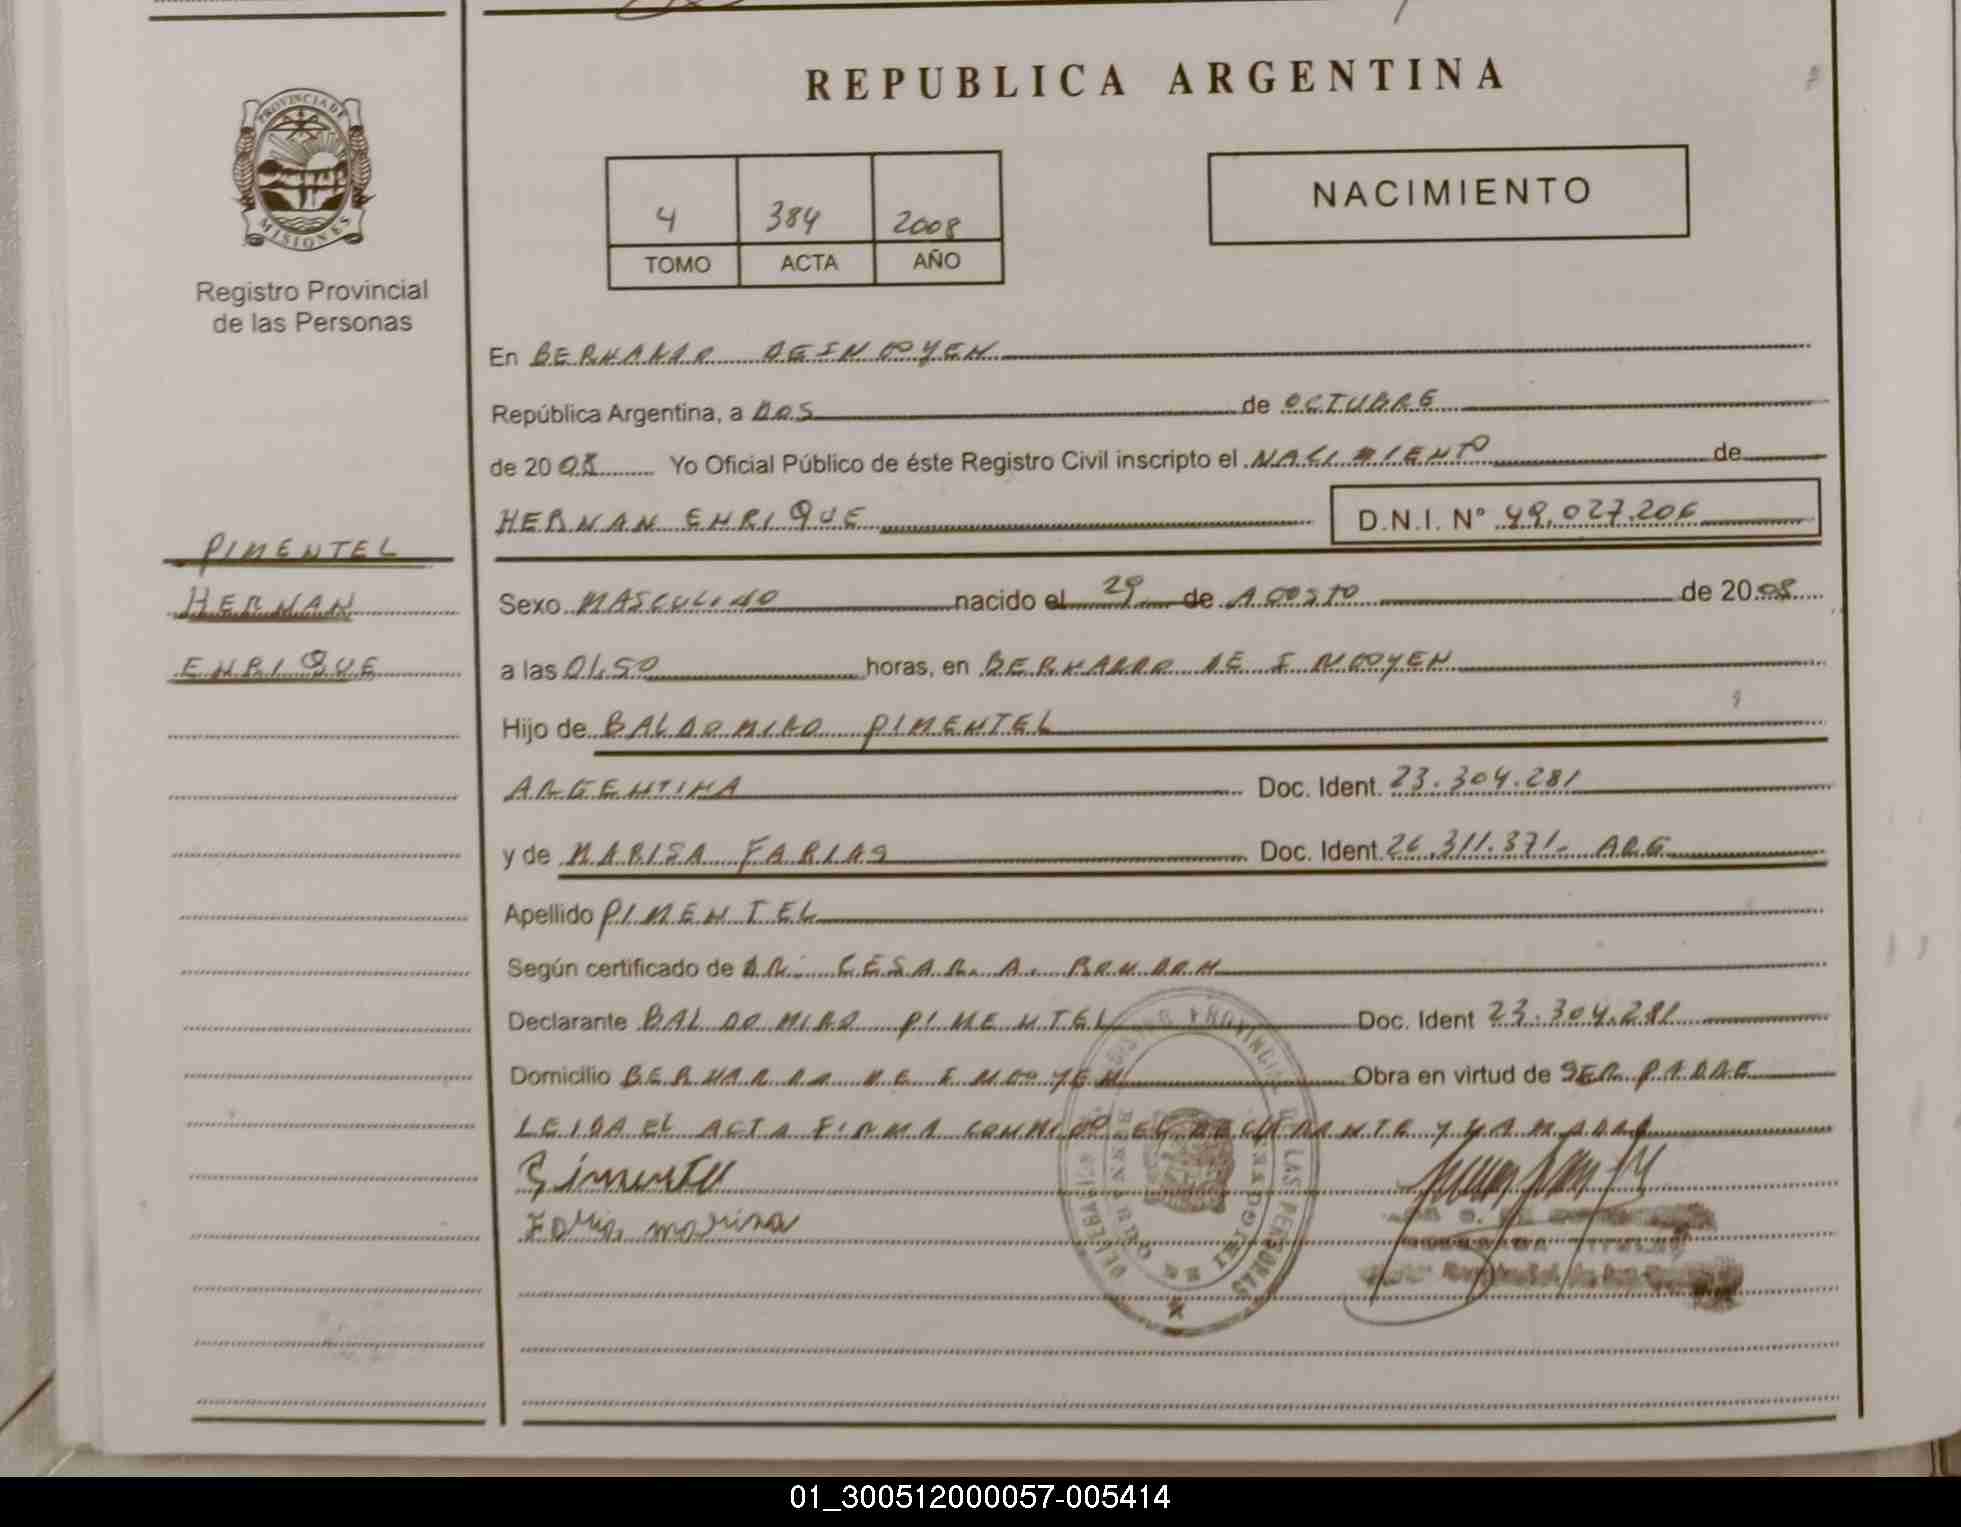 REPUBLICA ARGENTINA
PROVINCIA DE
MISIONES
Registro Provincial
de las Personas
4 384 2008
TOMO ACTA AÑO
NACIMIENTO
En BERNARDO DE IRIGOYEN
República Argentina, a DOS de OCTUBRE
de 2008 Yo Oficial Público de éste Registro Civil inscripto el NACIMIENTO de
HERNAN ENRIQUE D.N.I. Nº 49.027.206
PIMENTEL
HERNAN
ENRIQUE
Sexo MASCULINO nacido el 29 de AGOSTO de 2008
a las 01,50 horas, en BERNARDO DE IRIGOYEN
Hijo de BALDOMIRO PIMENTEL
ARGENTINA Doc. Ident. 23.304.281
y de MARISA FARIAS Doc. Ident. 26.311.371- ARG
Apellido PIMENTEL
Según certificado de DR. CESAR A. RONDAN
Declarante BALDOMIRO PIMENTEL Doc. Ident 23.304.281
Domicilio BERNARDO DE IRIGOYEN Obra en virtud de SER PADRE
LEIDA EL ACTA FIRMA CONMIGO EL DECLARANTE Y LA MADRE
Pimentel
Faria marisa
01_300512000057-005414